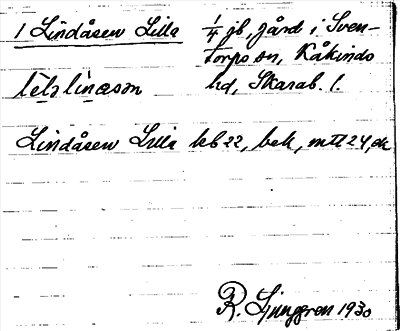 1 Lindåsen Lilla ¼ jb, gård i Sven-
torps sn, Kåkinds
hd, Skarab. l.
Lindåsen Lilla kb 22, bek, mtl 24, dk
R. Ljunggren 1930